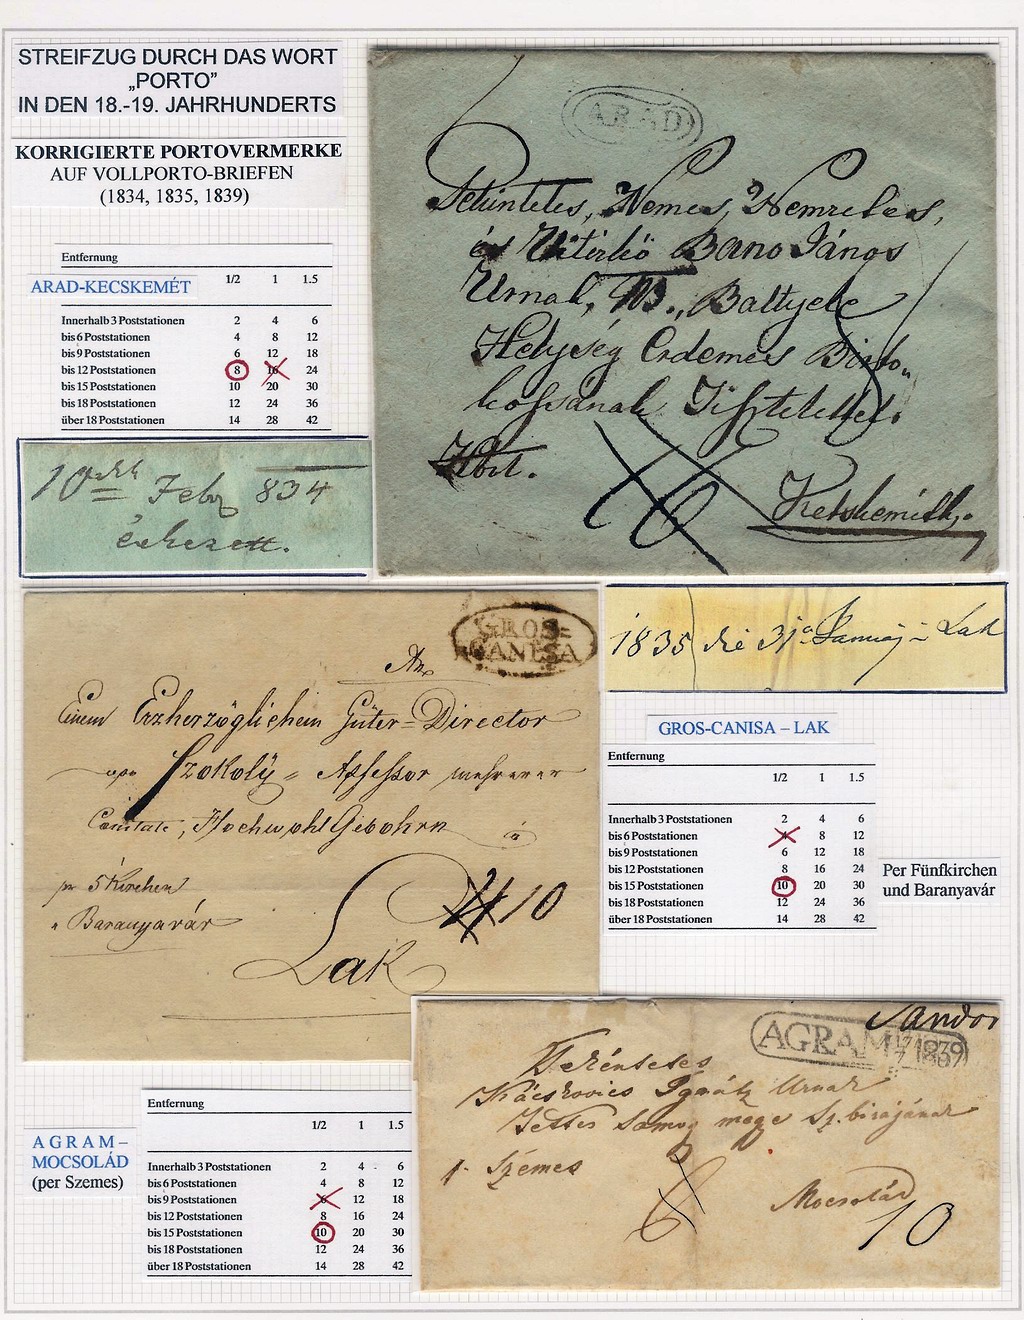 STREIFZUG DURCH DAS WORT
„PORTO”
IN DEN 18.-19. JAHRHUNDERTS
KORRIGIERTE PORTOVERMERKE
AUF VOLLPORTO-BRIEFEN
(1834, 1835, 1839)
Entfernung
ARAD-KECSKEMÉT 1/2 1 1.5
Innerhalb 3 Poststationen 2 4 6
bis 6 Poststationen 4 8 12
bis 9 Poststationen 6 12 18
bis 12 Poststationen 8 16 24
bis 15 Poststationen 10 20 30
bis 18 Poststationen 12 24 36
über 18 Poststationen 14 28 42
10 Feb 834
érkezett.
ARAD
Tekintetes, Nemes, Nemzetes,
és Vitézlő Bano János
Urnak, Battyele
Helység Érdemes Birto„
kossának Tisztelettel.
Ketskemeth.
8
GROS=
CANISA
An
Einem Erzherzöglichem Güter=Director
Szokoly = Assessor mehrerer
Comitate, Hochwohlgebohrn
pr 5Kirchen
Baranyavár
10
Lak
1835 die 31a Januarj = Lak
GROS-CANISA – LAK
Entfernung
1/2 1 1.5
Innerhalb 3 Poststationen 2 4 6
bis 6 Poststationen 4 8 12
bis 9 Poststationen 6 12 18
bis 12 Poststationen 8 16 24
bis 15 Poststationen 10 20 30
bis 18 Poststationen 12 24 36
über 18 Poststationen 14 28 42
Per Fünfkirchen
und Baranyavár
AGRAM–
MOCSOLÁD
(per Szemes)
Entfernung
1/2 1 1.5
Innerhalb 3 Poststationen 2 4 6
bis 6 Poststationen 4 8 12
bis 9 Poststationen 6 12 18
bis 12 Poststationen 8 16 24
bis 15 Poststationen 10 20 30
bis 18 Poststationen 12 24 36
über 18 Poststationen 14 28 42
Sandor
AGRAM
Tekéntetes
Kácskovics Ignátz Urnak
Tettes Samog megye Sz. birajának
p. Szemes
Mocsolád
6
10